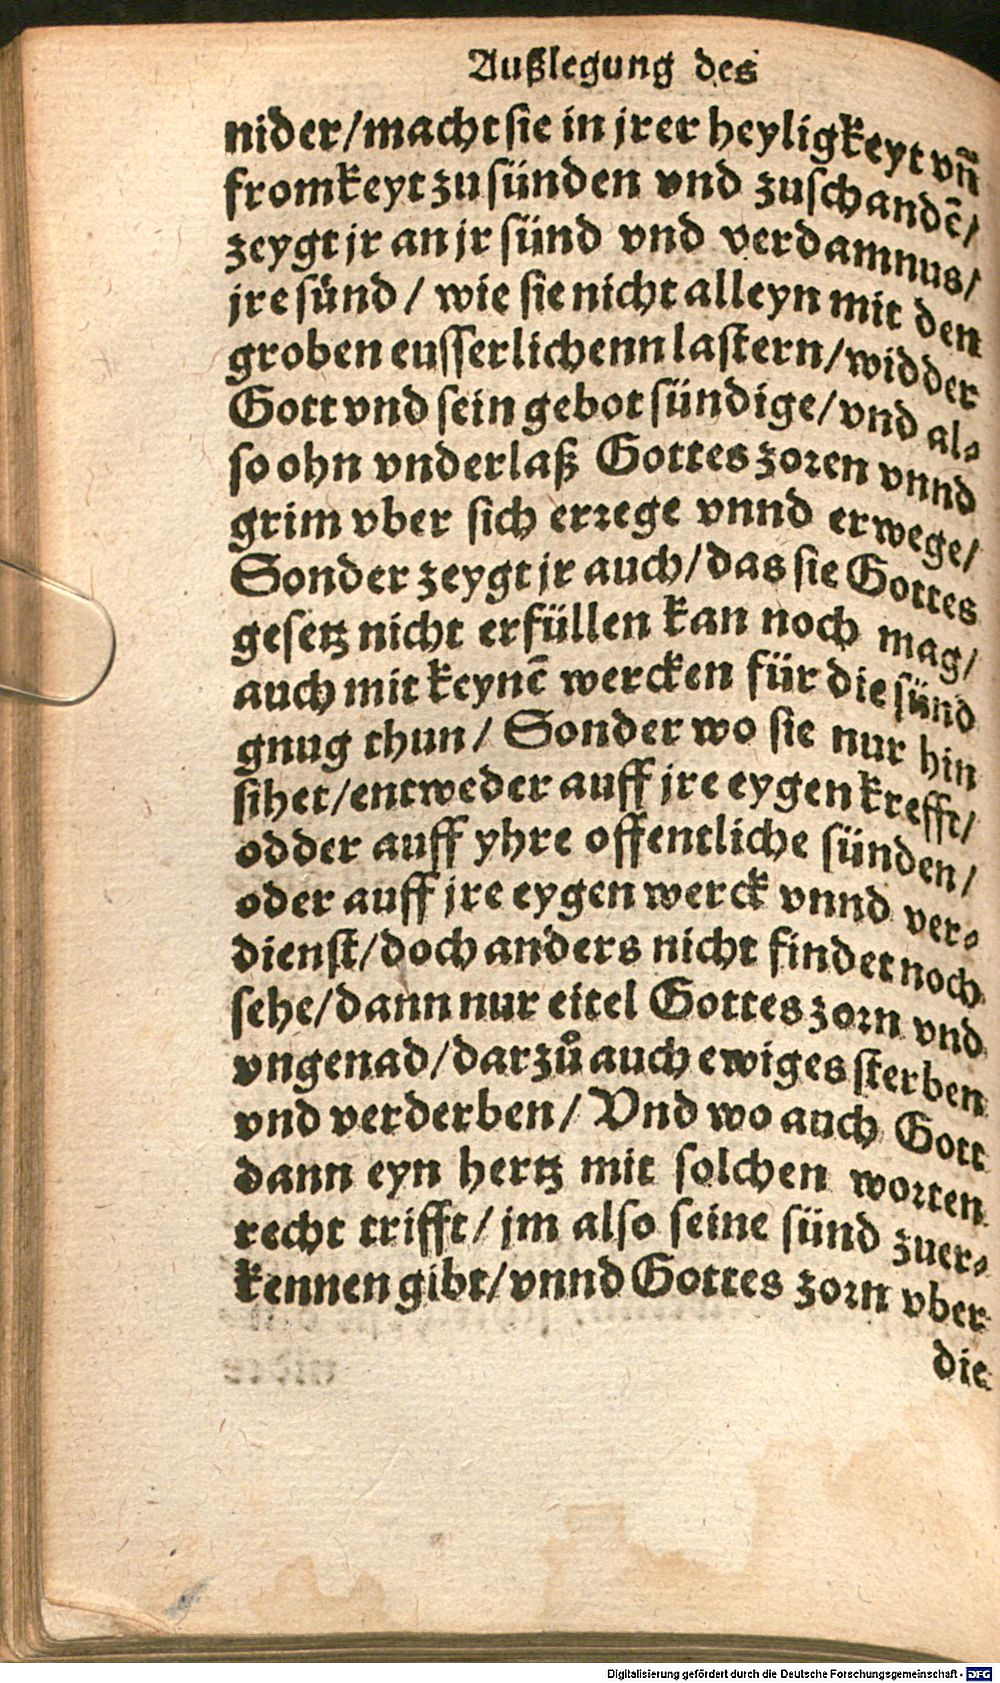 Außlegung des
nider/macht sie in jrer heyligkeyt vñ
fromkeyt zu sünden vnd zuschandē/
zeygt jr an jr sünd vnd verdamnus/
jre sünd/ wie sie nicht alleyn mit den
groben eusserlichenn lastern/widder
Gott vnd sein gebot sündige/vnd al⸗
so ohn vnderlaß Gottes zoren vnnd
grim vber sich errege vnnd erwege/
Sonder zeygt jr auch/das sie Gottes
gesetz nicht erfüllen kan noch mag/
auch mit keynē wercken für die sünd
gnug thun/ Sonder wo sie nur hin
sihet/entweder auff jre eygen krefft/
odder auff yhre offentliche sünden/
oder auff jre eygen werck vnnd ver⸗
dienst/doch anders nicht findet noch
sehe/dann nur eitel Gottes zorn vnd
vngenad/darzů auch ewiges sterben
vnd verderben/ Vnd wo auch Gott
dann eyn hertz mit solchen worten
recht trifft/jm also seine sünd zuer⸗
kennen gibt/vnnd Gottes zorn vber
die
Digitalisierung gefördert durch die Deutsche Forschungsgemeinschaft - DFG